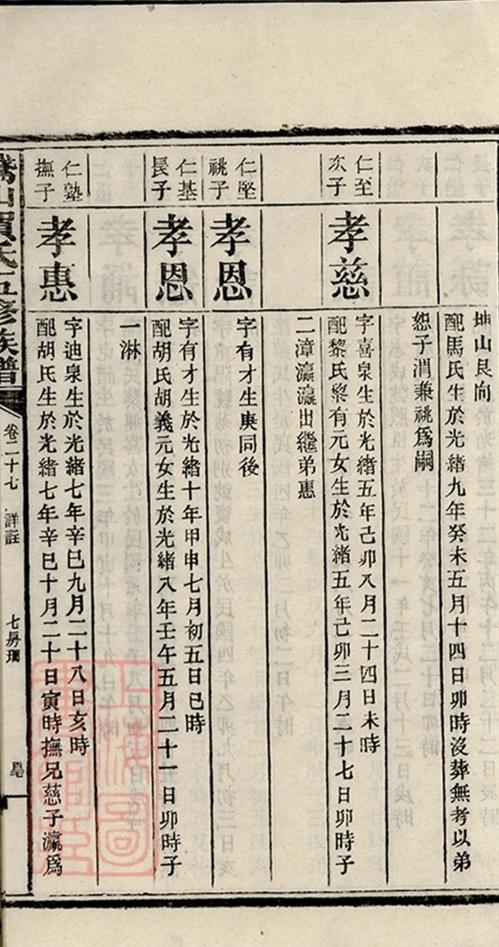 坤山艮向
配馬氏生於光緒九年癸未五月十四日卯時沒葬無考以弟
恕子渭兼祧爲嗣
仁至
次子
孝慈
字喜泉生於光緒五年己卯八月二十四日未時
配黎氏黎有元女生於光緒五年己卯三月二十七日卯時子
二漳瀛瀛出繼弟惠
仁堅
祧子
孝恩
字有才生庚同後
仁基
長子
孝恩
字有才生於光緒十年甲申七月初五日巳時
配胡氏胡義元女生於光緒八年壬午五月二十一日卯時子
一淋
仁塾
撫子
孝惠
字迪泉生於光緒七年辛巳九月二十八日亥時
配胡氏生於光緒七年辛巳十月二十日寅時撫兄慈子瀛爲
山賀氏五修族譜
卷二十七
詳註
七房